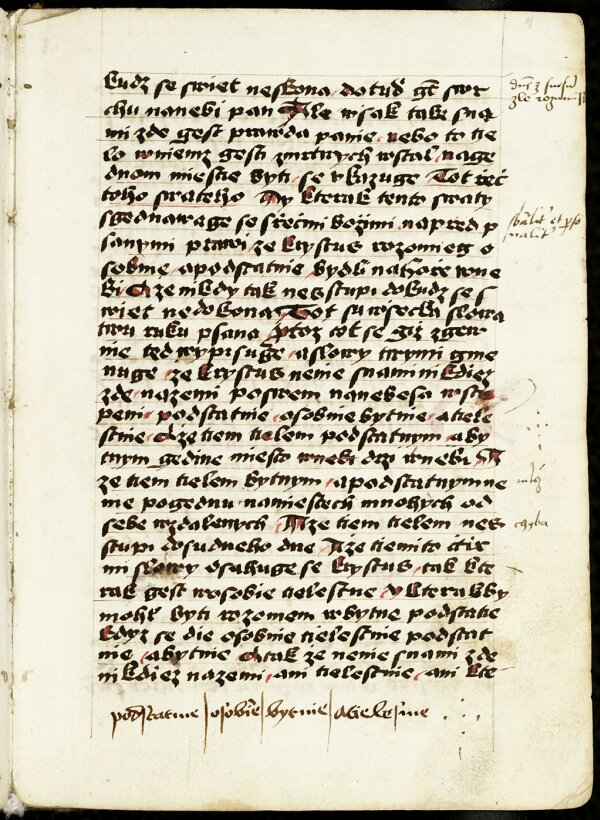 kudz se swiet neskona, dotud gt swr
chu nanebi pan Ale wsak take sna
mi zde gest prawda panie, nebo to tie
lo wniemz gesti zmrtwych wstal, nage
dnom miestie byti, se vkazuge Tot rec
toho swateho A kterak tento swaty
sgednawage se srecmi bozimi, napred p
sanymi prawi, ze krystus rozomieg o
sobnie, apodstatnie, bydli nahorie wne
bi A ze nikdy tak nesstupi dokudz se s
wiet nedokona Tot su wssecka slowa
twu ruku psana Ptoz tot se giz zgew
nie ted wypisuge, aslowy tirymi gme
nuge, ze krystus nenie snami nikdiez
zde, nazemi, poswem nanebesa wstu
peni, podstatnie, osobnie bytnie, atiele
stnie, A ze tiem tielem podstatnym, aby
tnym, gedine miesto wnebi drzi wnebi, A
ze tiem tielem bytnym, apodstatnym ne
nie pogednu namiestech mnohych od
sebe wzdalenych, A ze tiem tielem nes
stupi dosudneho dne, A ze tiemito ctir
mi slowy osahuge se krystus, tak kte
rak gest wosobie tielestne, A kterakby
mohl byti rozomem wbytne podstatie
kdyz se die osobnie tielestnie podstat
nie, abytnie A tak ze nenie snami zde
nikdiez nazemi, ani tielestnie, ani kte
podstatnie osobnie bytnie atielestnie